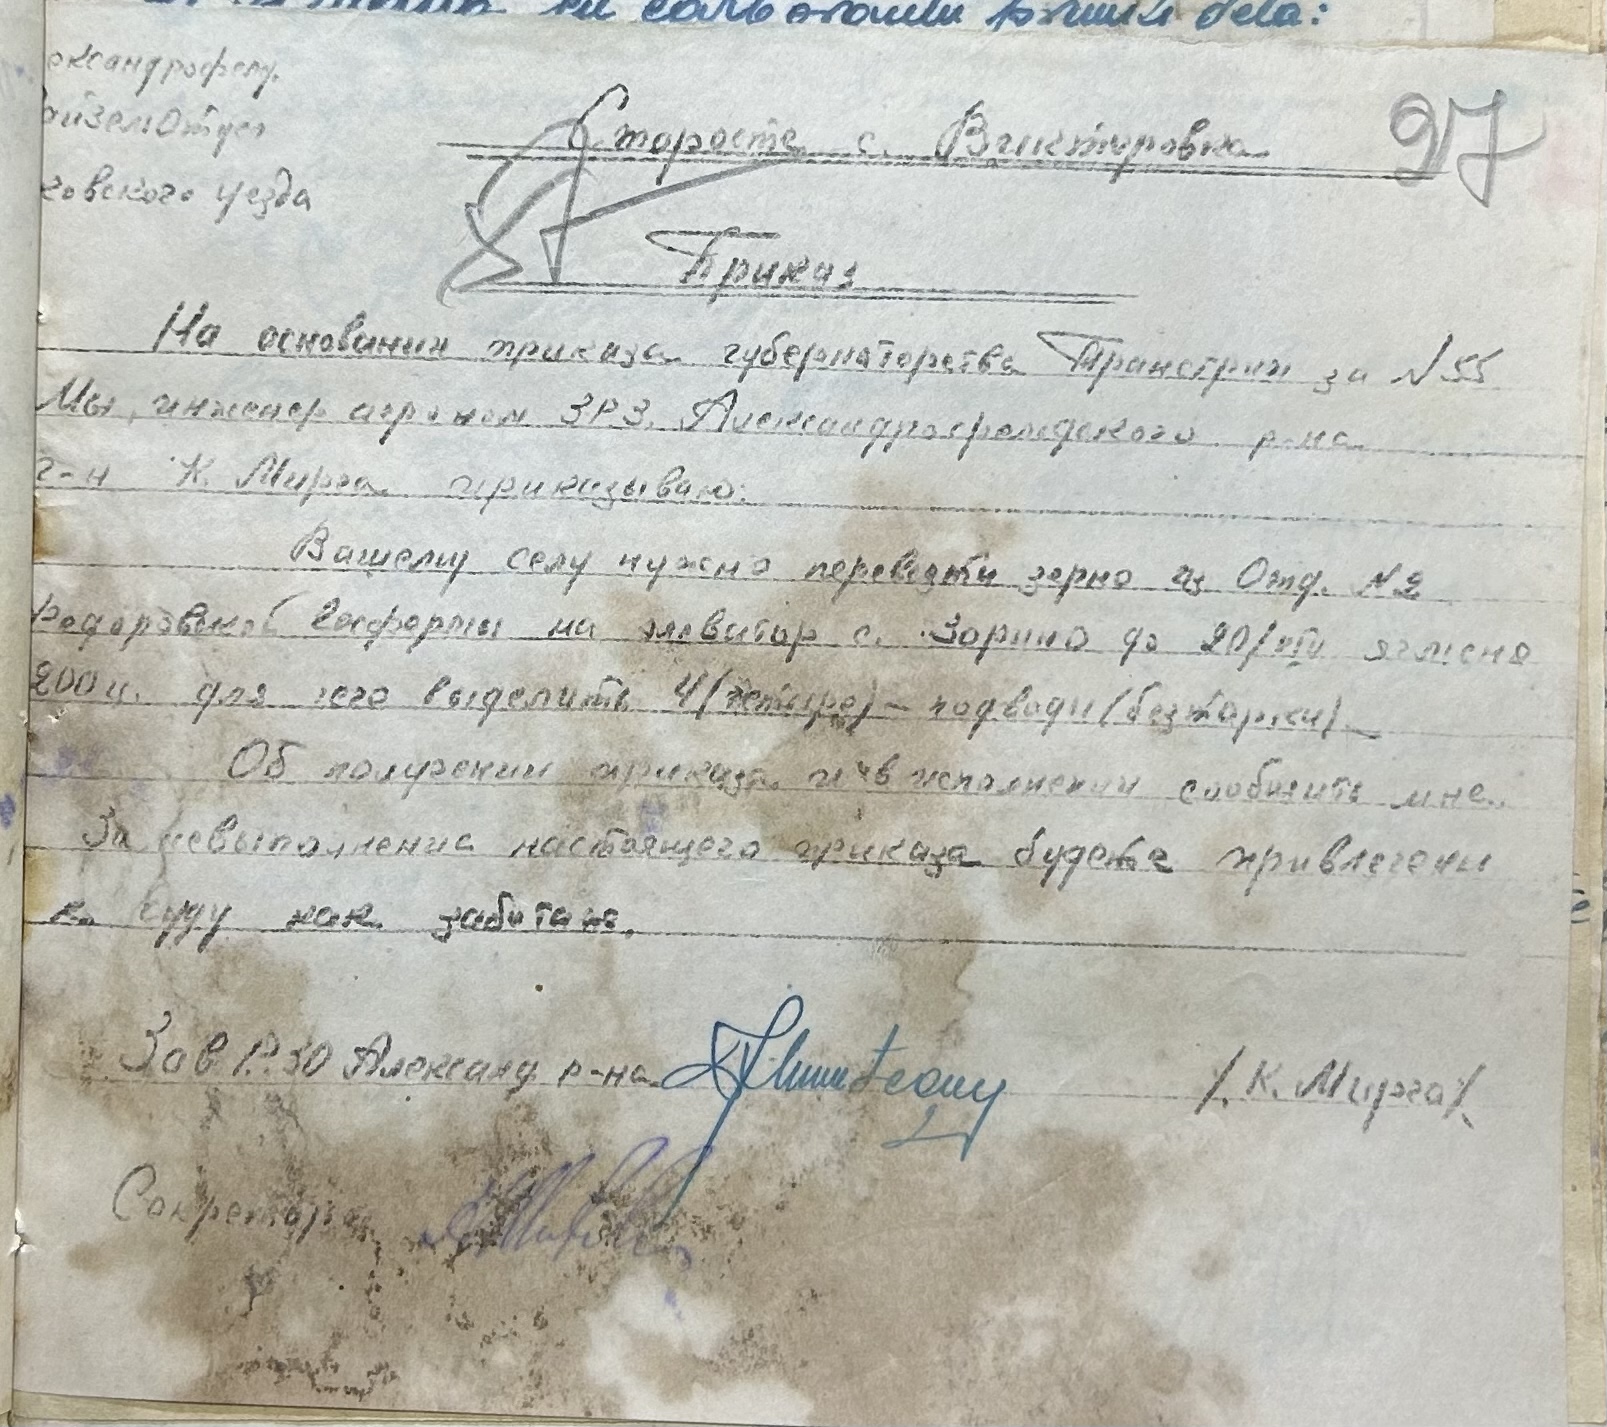 оксандрофелд.
айземОтдел
ковского уезда
97
Старосте с. Вииктуровка
Приказ
На основании приказа губернаторства Транстрии за №55
Мы, инженер агроном ЗРЗ. Александрофельдского р-на
г-н К. Мирза приказываю:
Вашему селу нужно перевезти зерно из Отд. №2
Федоровской Госфермы на элеватор с. Зорино до 20/VIII ячменя
200ц. для чего выделить 4(четыре) – подводы (безтарки) –
Об получении приказа и в исполнении сообщить мне.
За невыполнение настоящего приказа будете привлечены
к суду как саботаж.
Зав Р.ЗО Александ р-на /К. Мирза/
Секретарь